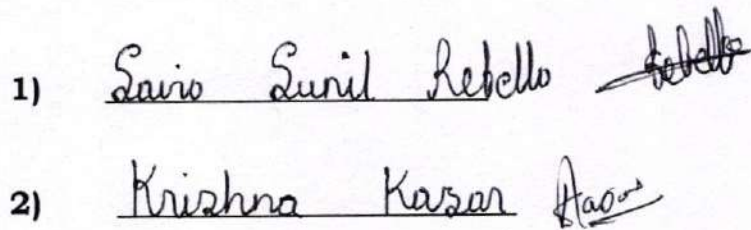 1) Savio Sunil Rebello Rebello
2) Krishna Kasar